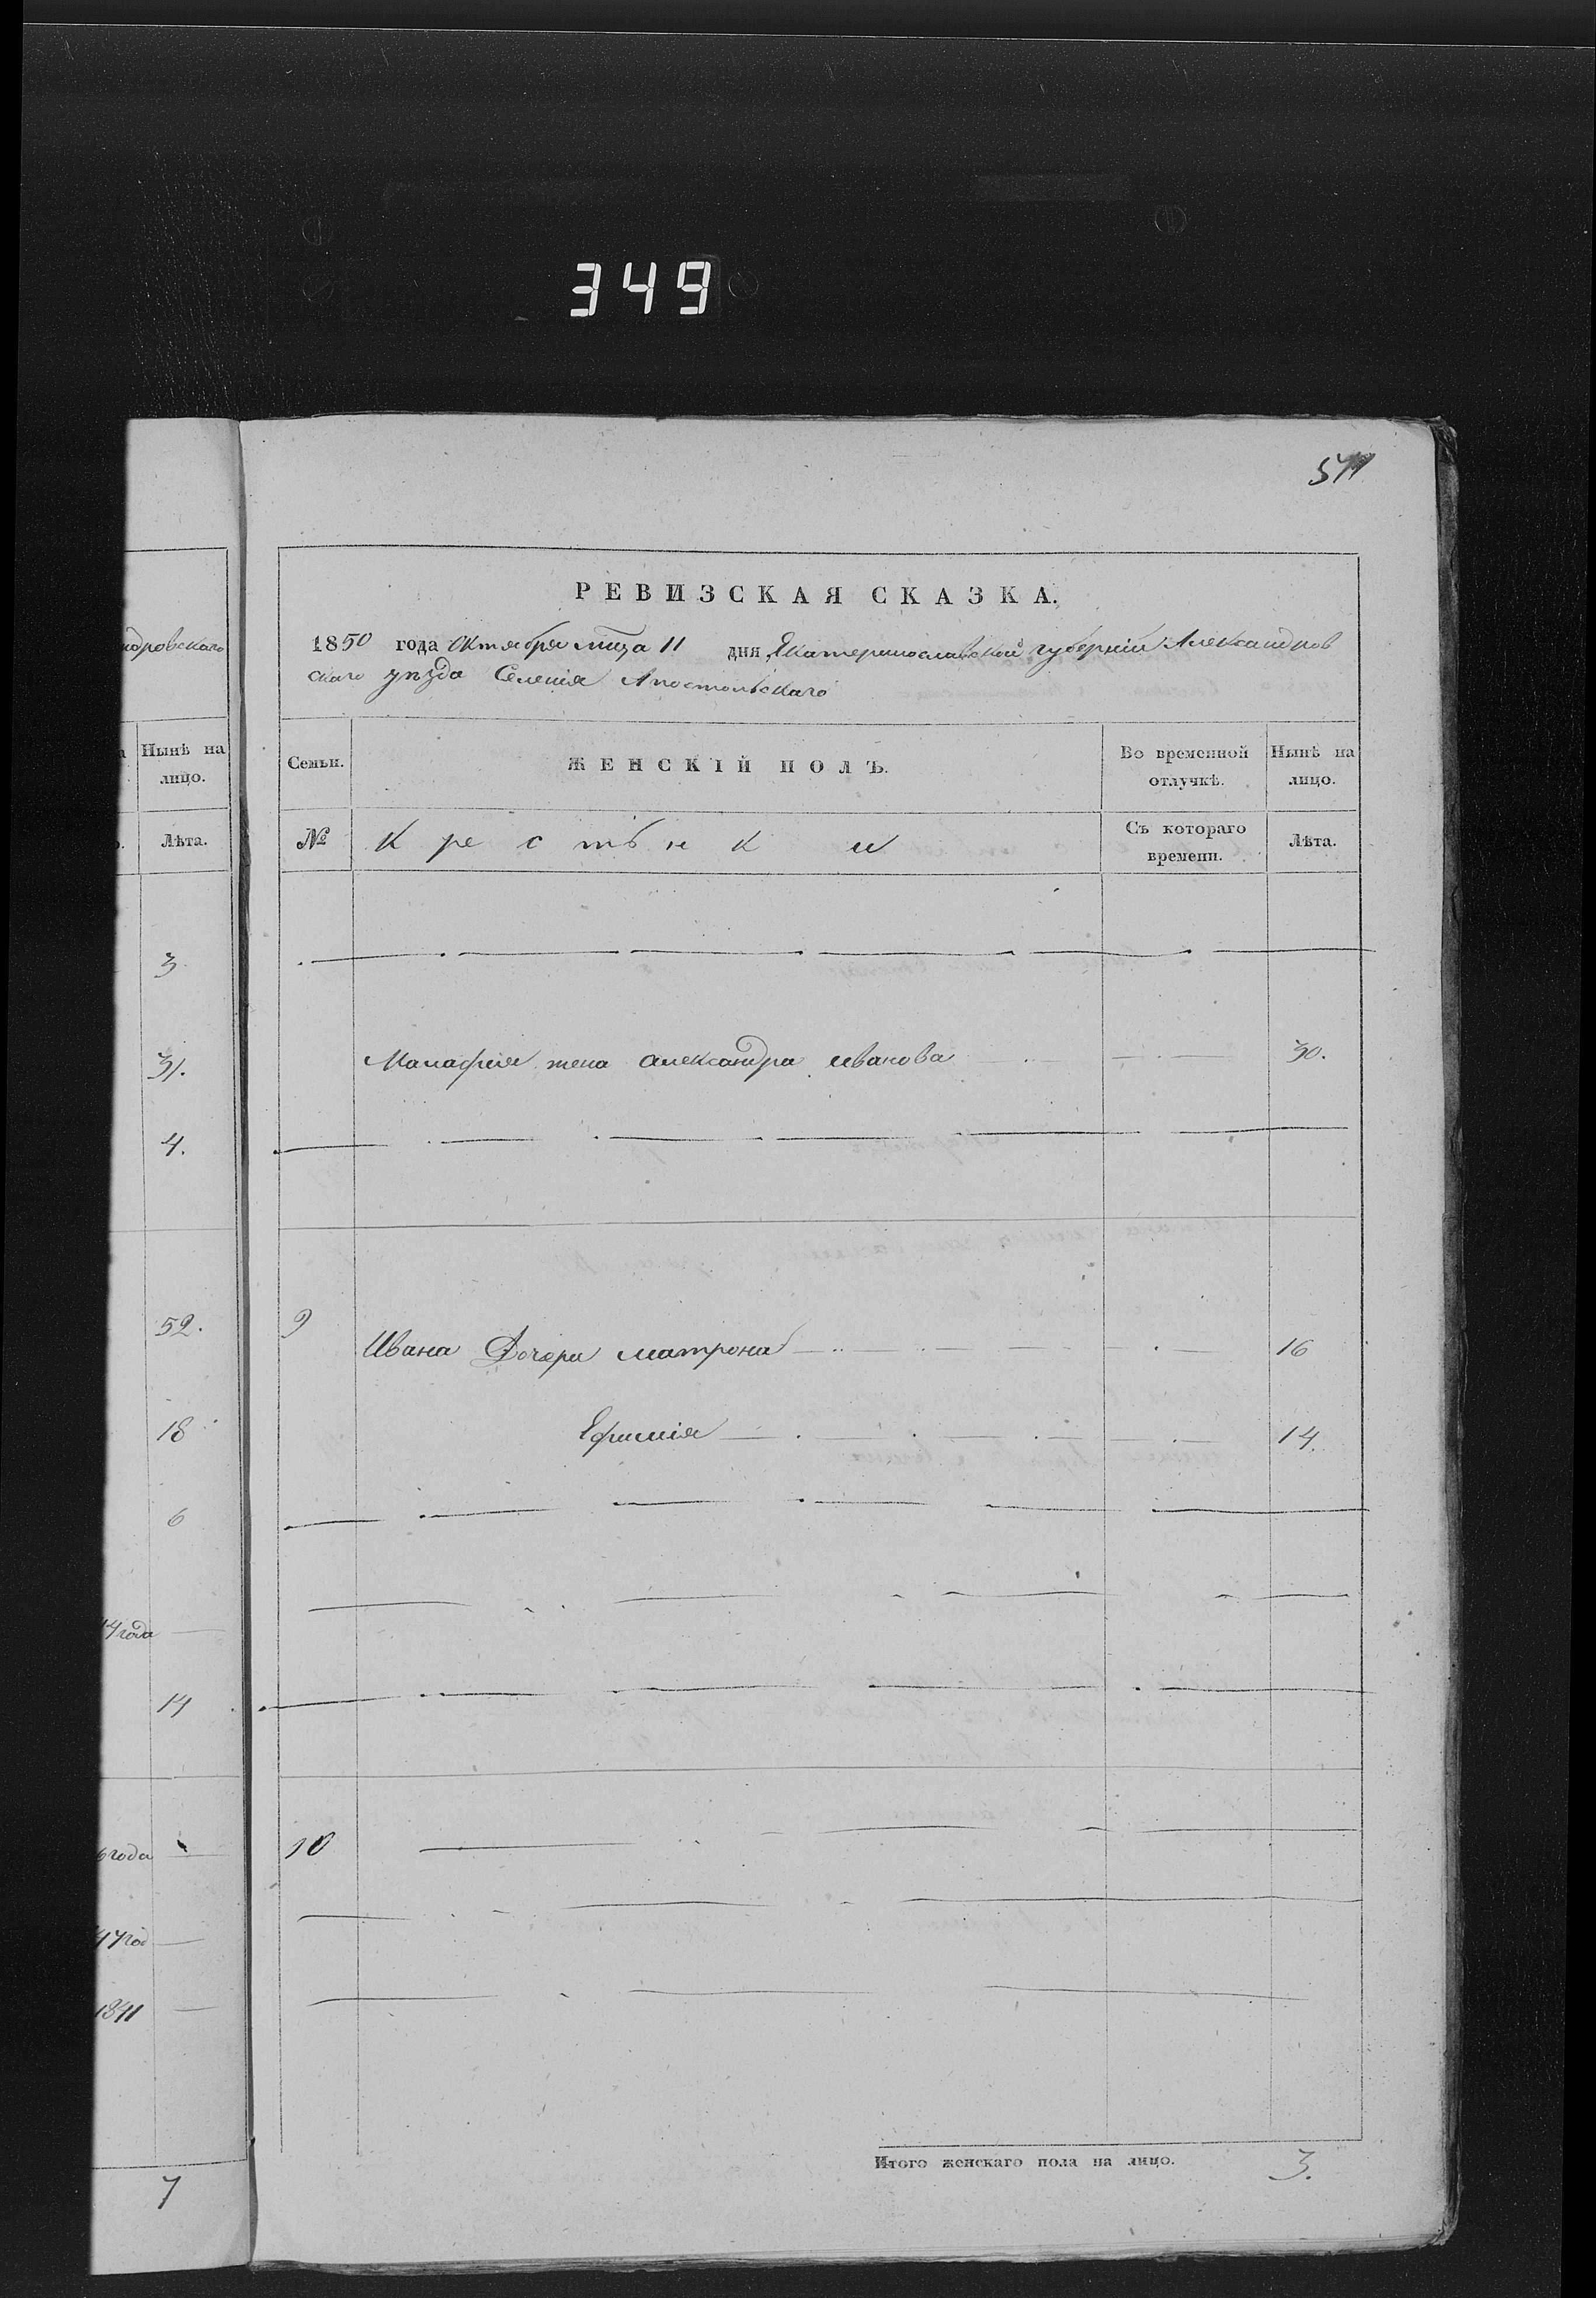 349
511
РЕВИЗСКАЯ СКАЗКА.
1850 года Октября мца 11 дня Екатеринославской губерніи Александров
скаго уѣзда Селенія Апостольскаго
ндровскаго
Нынѣ на
лицо.
Лѣта.
3
31.
4.
52.
18
6
14 года
14
6 года
47 год
1841
7
Семьи.
ЖЕНСКІЙ ПОЛЪ.
Во временной
отлучкѣ.
Нынѣ на
лицо.
№
Крестьнки
Съ котораго
времени.
Лѣта.
Малафія жена Александра Иванова 30.
9
Ивана Дочери Матрона 16
Ефимія 14.
10
Итого женскаго пола на лицо. 3.